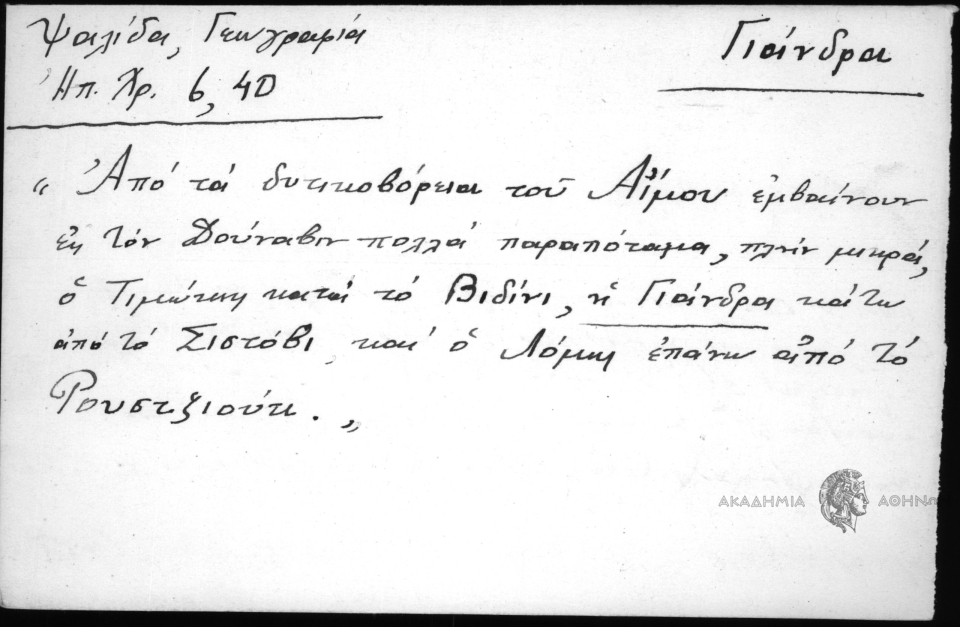 Ψαλίδα, Γεωγραφία
Ἠπ. Χρ. 6, 40
Γιάνδρα
" Ἀπό τά δυτικοβόρεια τοῦ Αἵμου ἐμβαίνουν
εἰς τόν Δούναβιν πολλά παραπόταμα, πλήν μικρά,
ὁ Τιμώκης κατά τό Βιδίνι, ἡ Γιάνδρα κάτω
ἀπό τό Σιστόβι καί ὁ Λόμης ἐπάνω ἀπό τό
Ρουστζιούκι. "
ΑΚΑΔΗΜΙΑ ΑΘΗΝΩ